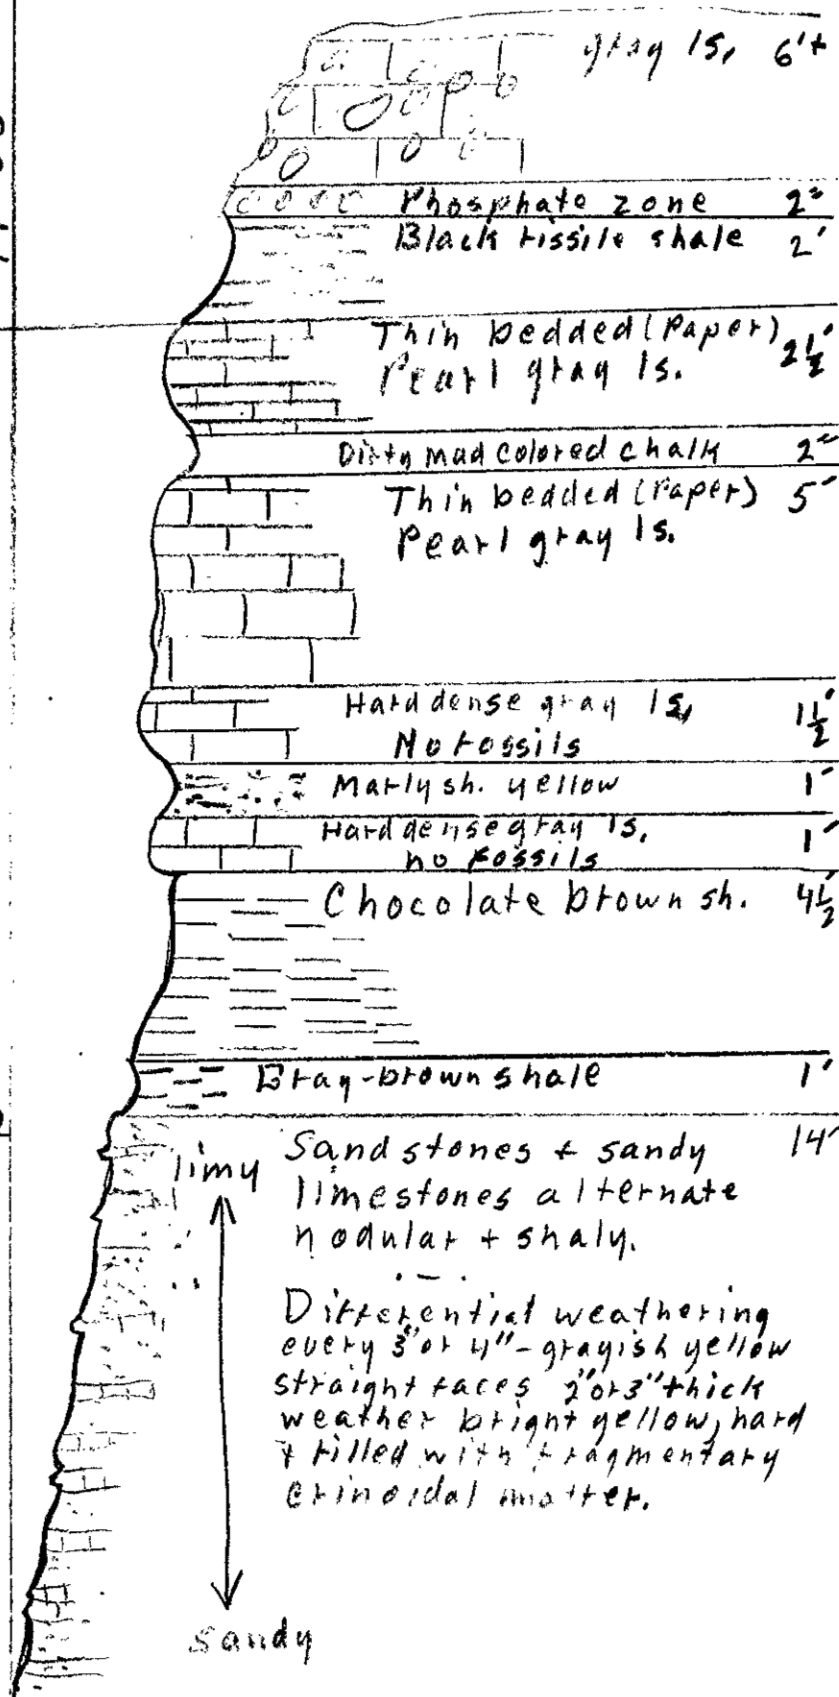 gray ls, 6'+
Phosphate zone 2"
Black fissile shale 2'
Thin bedded (Paper) 2½'
Pearl gray ls.
Dirty mud colored chalk 2"
Thin bedded (Paper) 5'
Pearl gray ls.
Hard dense gray ls, 1½'
No fossils
Marly sh. yellow 1'
Hard dense gray ls, 1'
no fossils
Chocolate brown sh. 4½'
Gray-brown shale 1'
limy
Sandstones + sandy 14'
limestones alternate
nodular + shaly.
Differential weathering
every 3" or 4" - grayish yellow
straight faces 2" or 3" thick
weather bright yellow, hard
+ filled with fragmentary
crinoidal matter.
sandy